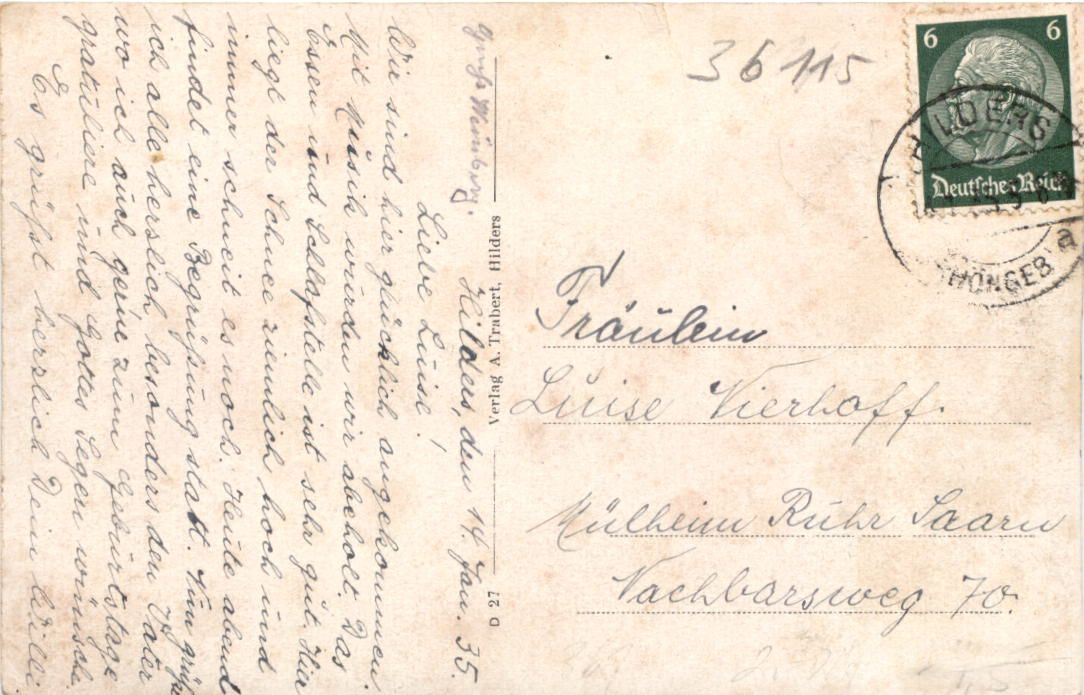 36 115
6 6
Deutsches Reich
HILDERS
RHÖNGEB
a
Gruß Nürnberg.
Hilders, den 14. Jan. 35.
Liebe Luise!
Wir sind hier glücklich angekommen.
Mit Musik wurden wir abeholt. Das
Essen und Schlafstelle ist sehr gut. Hier
liegt der Schnee ziemlich hoch und
immer schneit es noch. Heute abend
findet eine Begrüßung statt. Nun grüß
ich alle herslich besonders den Vater
wo ich auch gerne zum Geburtstage
gratuliere und Gottes Segen wünsche
Es grüßt herzlich Dein Willi
Verlag A. Trabert, Hilders
D 27
Fräulein
Luise Vierhoff.
Mülheim Ruhr Saarn
Nachbarsweg 70.